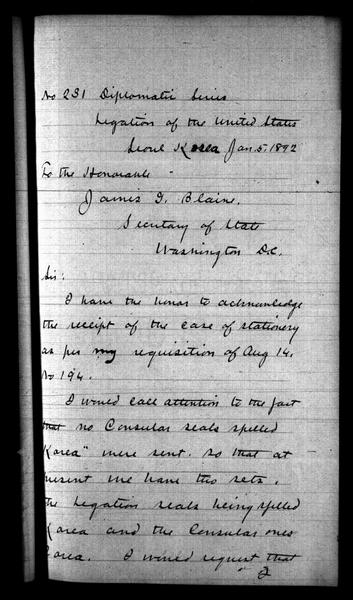 No 231 Diplomatic Series
Legation of the United States
Seoul Korea Jan. 5. 1892
To the Honorable
James G. Blaine,
Secretary of State
Washington D.C.
Sir:
I have the honor to acknowledge
the receipt of the case of stationery
as per my requisition of Aug 14.
No 194.
I would call attention to the fact
that no Consular seals spelled
Korea" were sent. so that at
present we have two sets.
the Legation seals being spelled
Korea and the Consular ones
Corea. I would request that